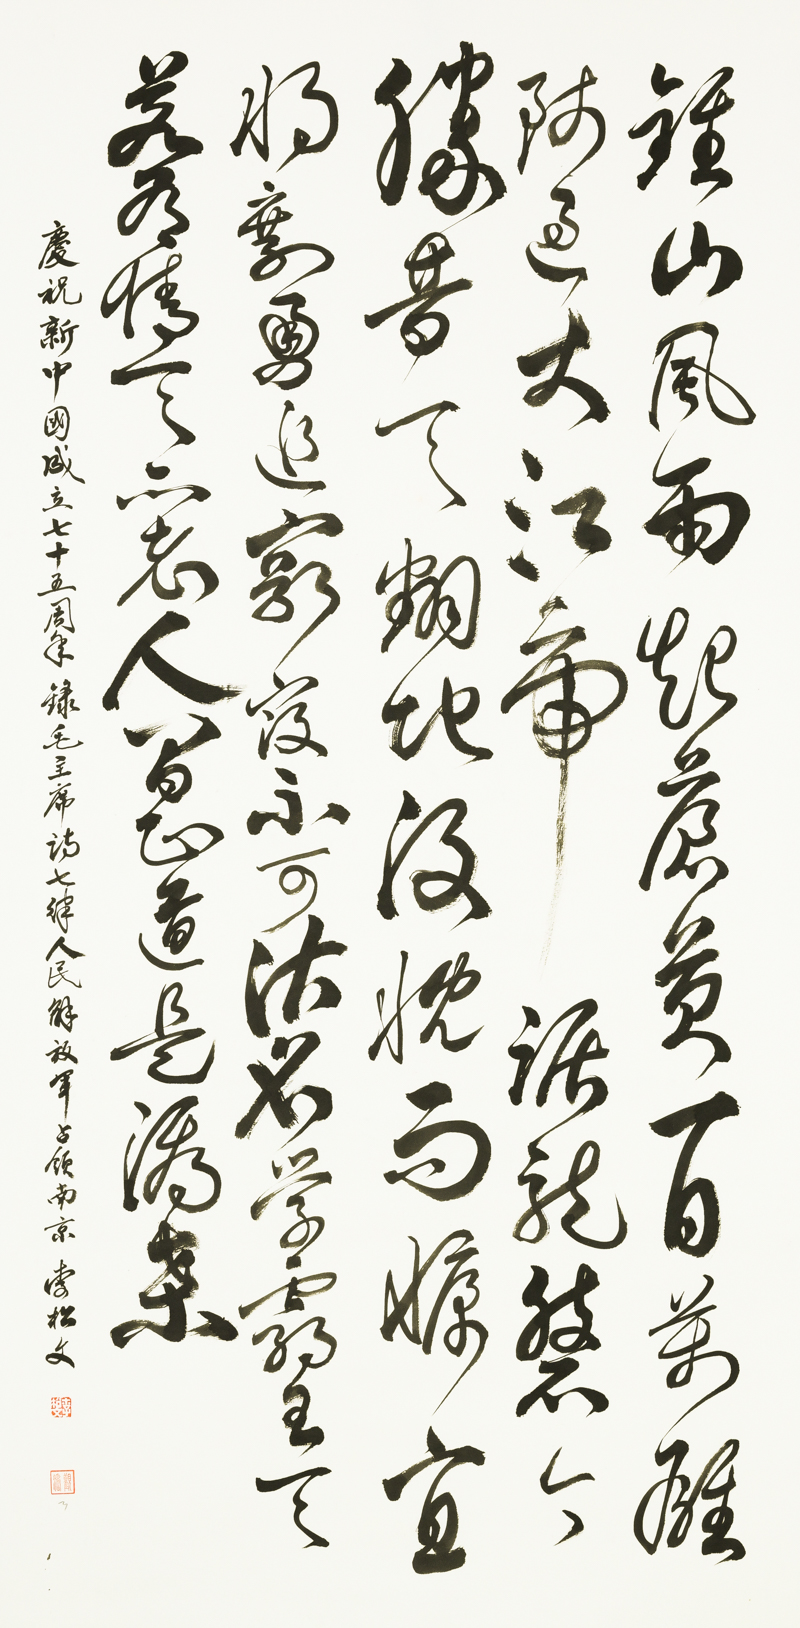 鍾山風雨起蒼黃百萬雄
師過大江虎踞龍盤今
勝昔天翻地覆慨而慷宜
將剩勇追窮寇不可沽名學霸王天
若有情天亦老人間正道是滄桑
慶祝新中國成立七十五周年錄毛主席詩七律人民解放軍占領南京 李松文